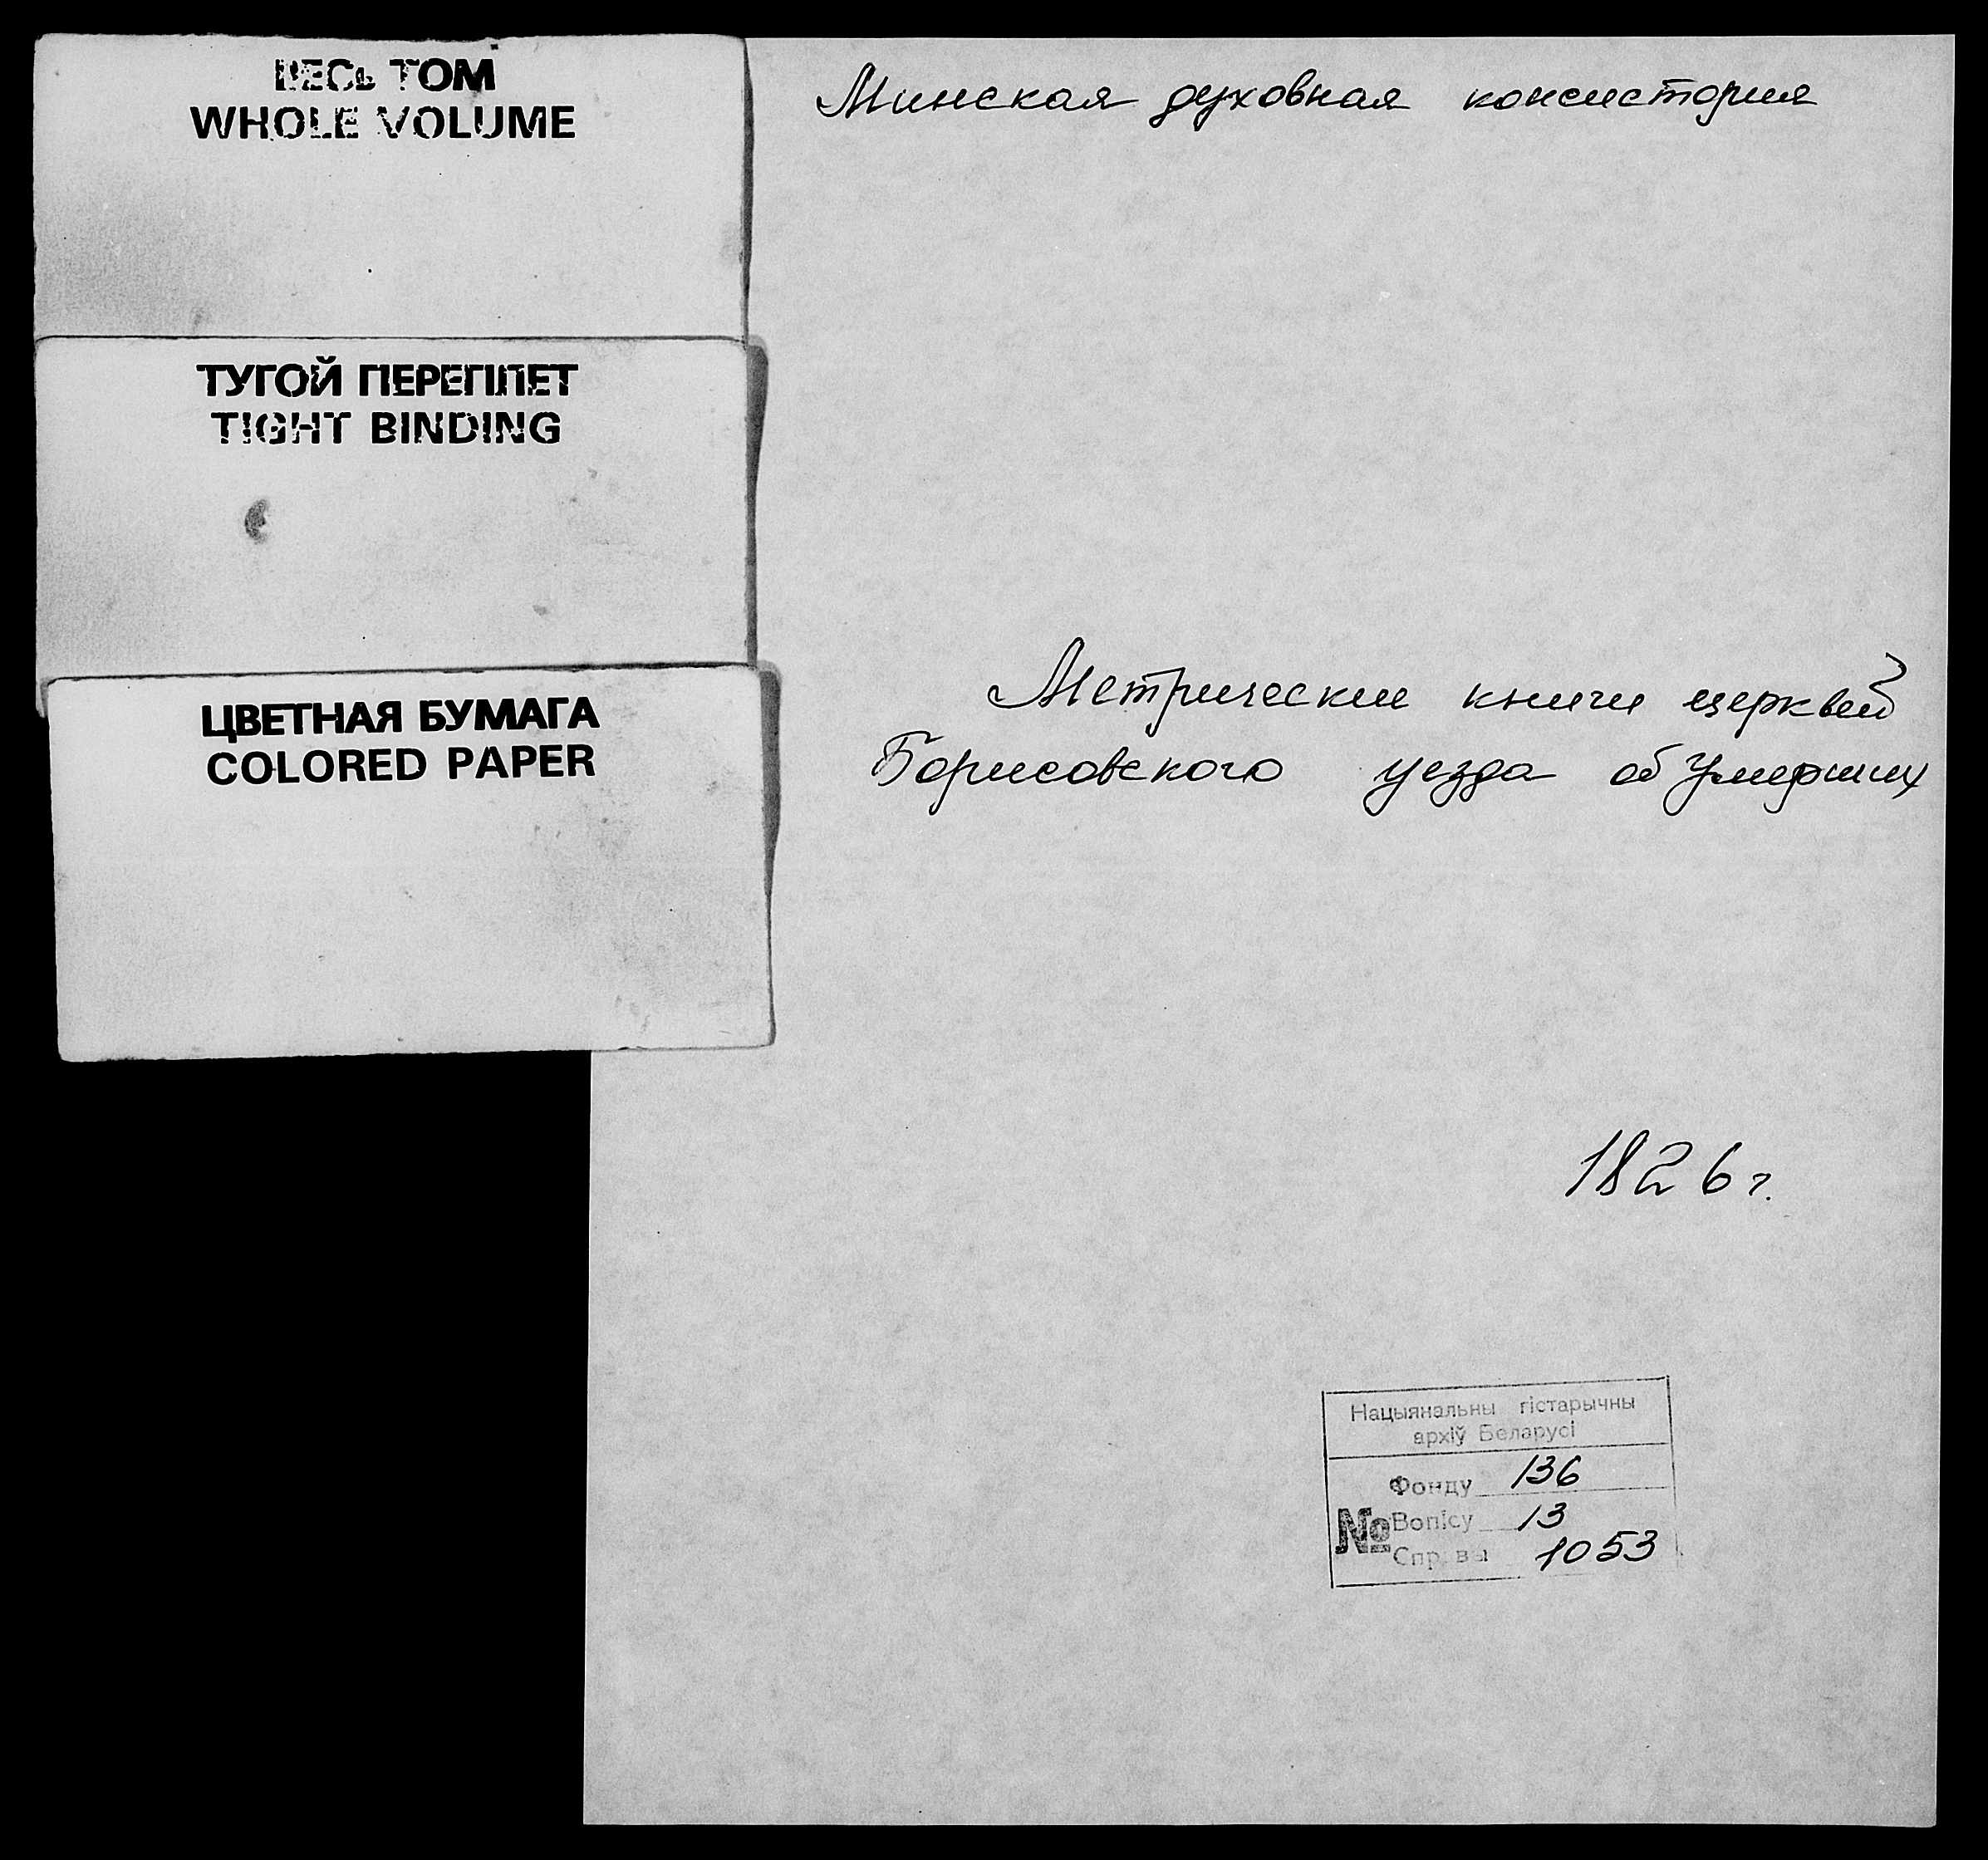 ВЕСЬ ТОМ
WHOLE VOLUME
ТУГОЙ ПЕРЕПЛЕТ
TIGHT BINDING
ЦВЕТНАЯ БУМАГА
COLORED PAPER
Минская духовная консистория
Метрические книги церквей
Борисовского уезда об умерших
1826 г.
Нацыянальны гістарычны
архіў Беларусі
Фонду 136
№ Вопісу 13
Справы 1053